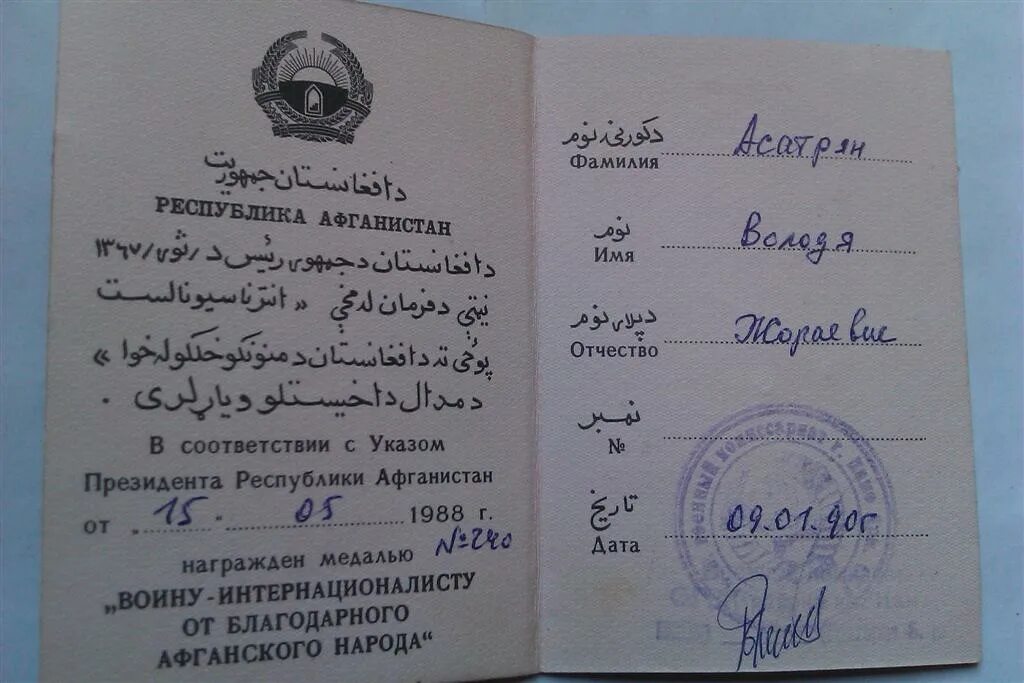 دافغانستان جمهوریت
РЕСПУБЛИКА АФГАНИСТАН
دافغانستان دجمهوری رئیس د / ثور / ۱۳۶۷
نیټې دفرمان له مخې « انترناسیونالست
پوځی ته دافغانستان دمننونکو خلکو له خوا »
دمدال داخیستلو ویاړ لری .
В соответствии с Указом
Президента Республики Афганистан
от „ 15 “ 05 1988 г.
№ 240
награжден медалью
„ВОИНУ-ИНТЕРНАЦИОНАЛИСТУ
ОТ БЛАГОДАРНОГО
АФГАНСКОГО НАРОДА“
دکورنۍ نوم
Фамилия Асатрян
نوم
Имя Володя
دپلار نوم
Отчество Жораевич
نمبر
№
تاریخ
Дата 09.01.90г
военный комиссариат г.